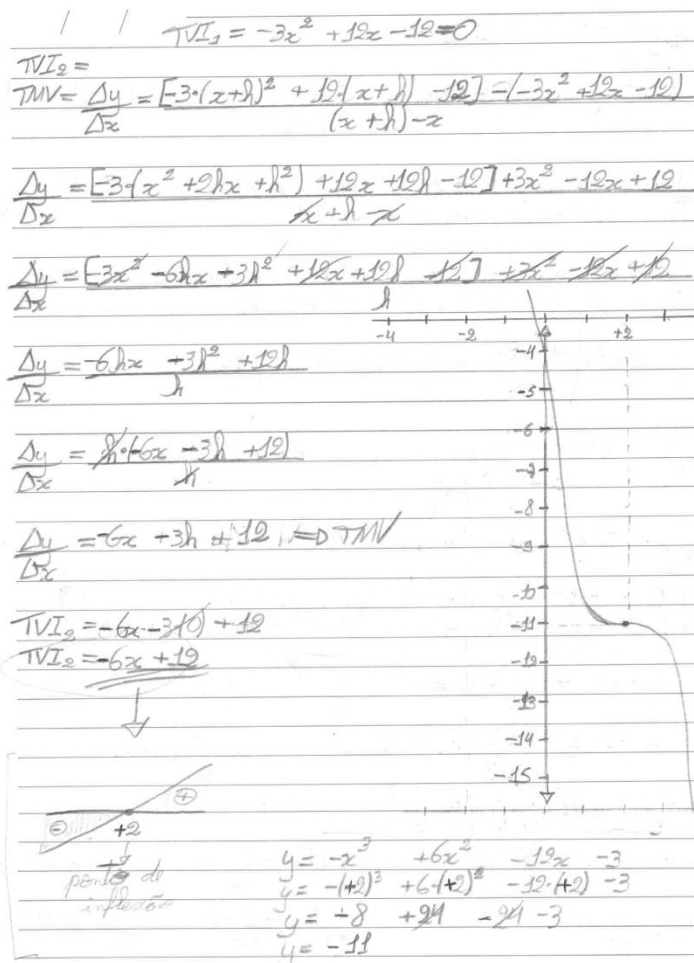 TVI₁ = -3x² +12x -12=0
TVI₂=
TMV= Δy/Δx = [-3·(x+h)² + 12·(x+h) -12] -(-3x² +12x -12) / (x+h)-x
Δy/Δx = [-3·(x² +2hx +h²) +12x +12h -12] +3x² -12x +12 / x+h-x
Δy/Δx = [-3x² -6hx -3h² +12x +12h -12] +3x² -12x +12 / h
-4 -2 0 +2
Δy/Δx = -6hx -3h² +12h / h
Δy/Δx = h·(-6x -3h +12) / h
Δy/Δx = -6x -3h +12 => TMV
TVI₂ = -6x -3(0) +12
TVI₂ = -6x +12
-4
-5
-6
-7
-8
-9
-10
-11
-12
-13
-14
-15
- +
+2
ponto de
inflexão
y= -x³ +6x² -12x -3
y= -(+2)³ +6·(+2)² -12·(+2) -3
y= -8 +24 -24 -3
y= -11